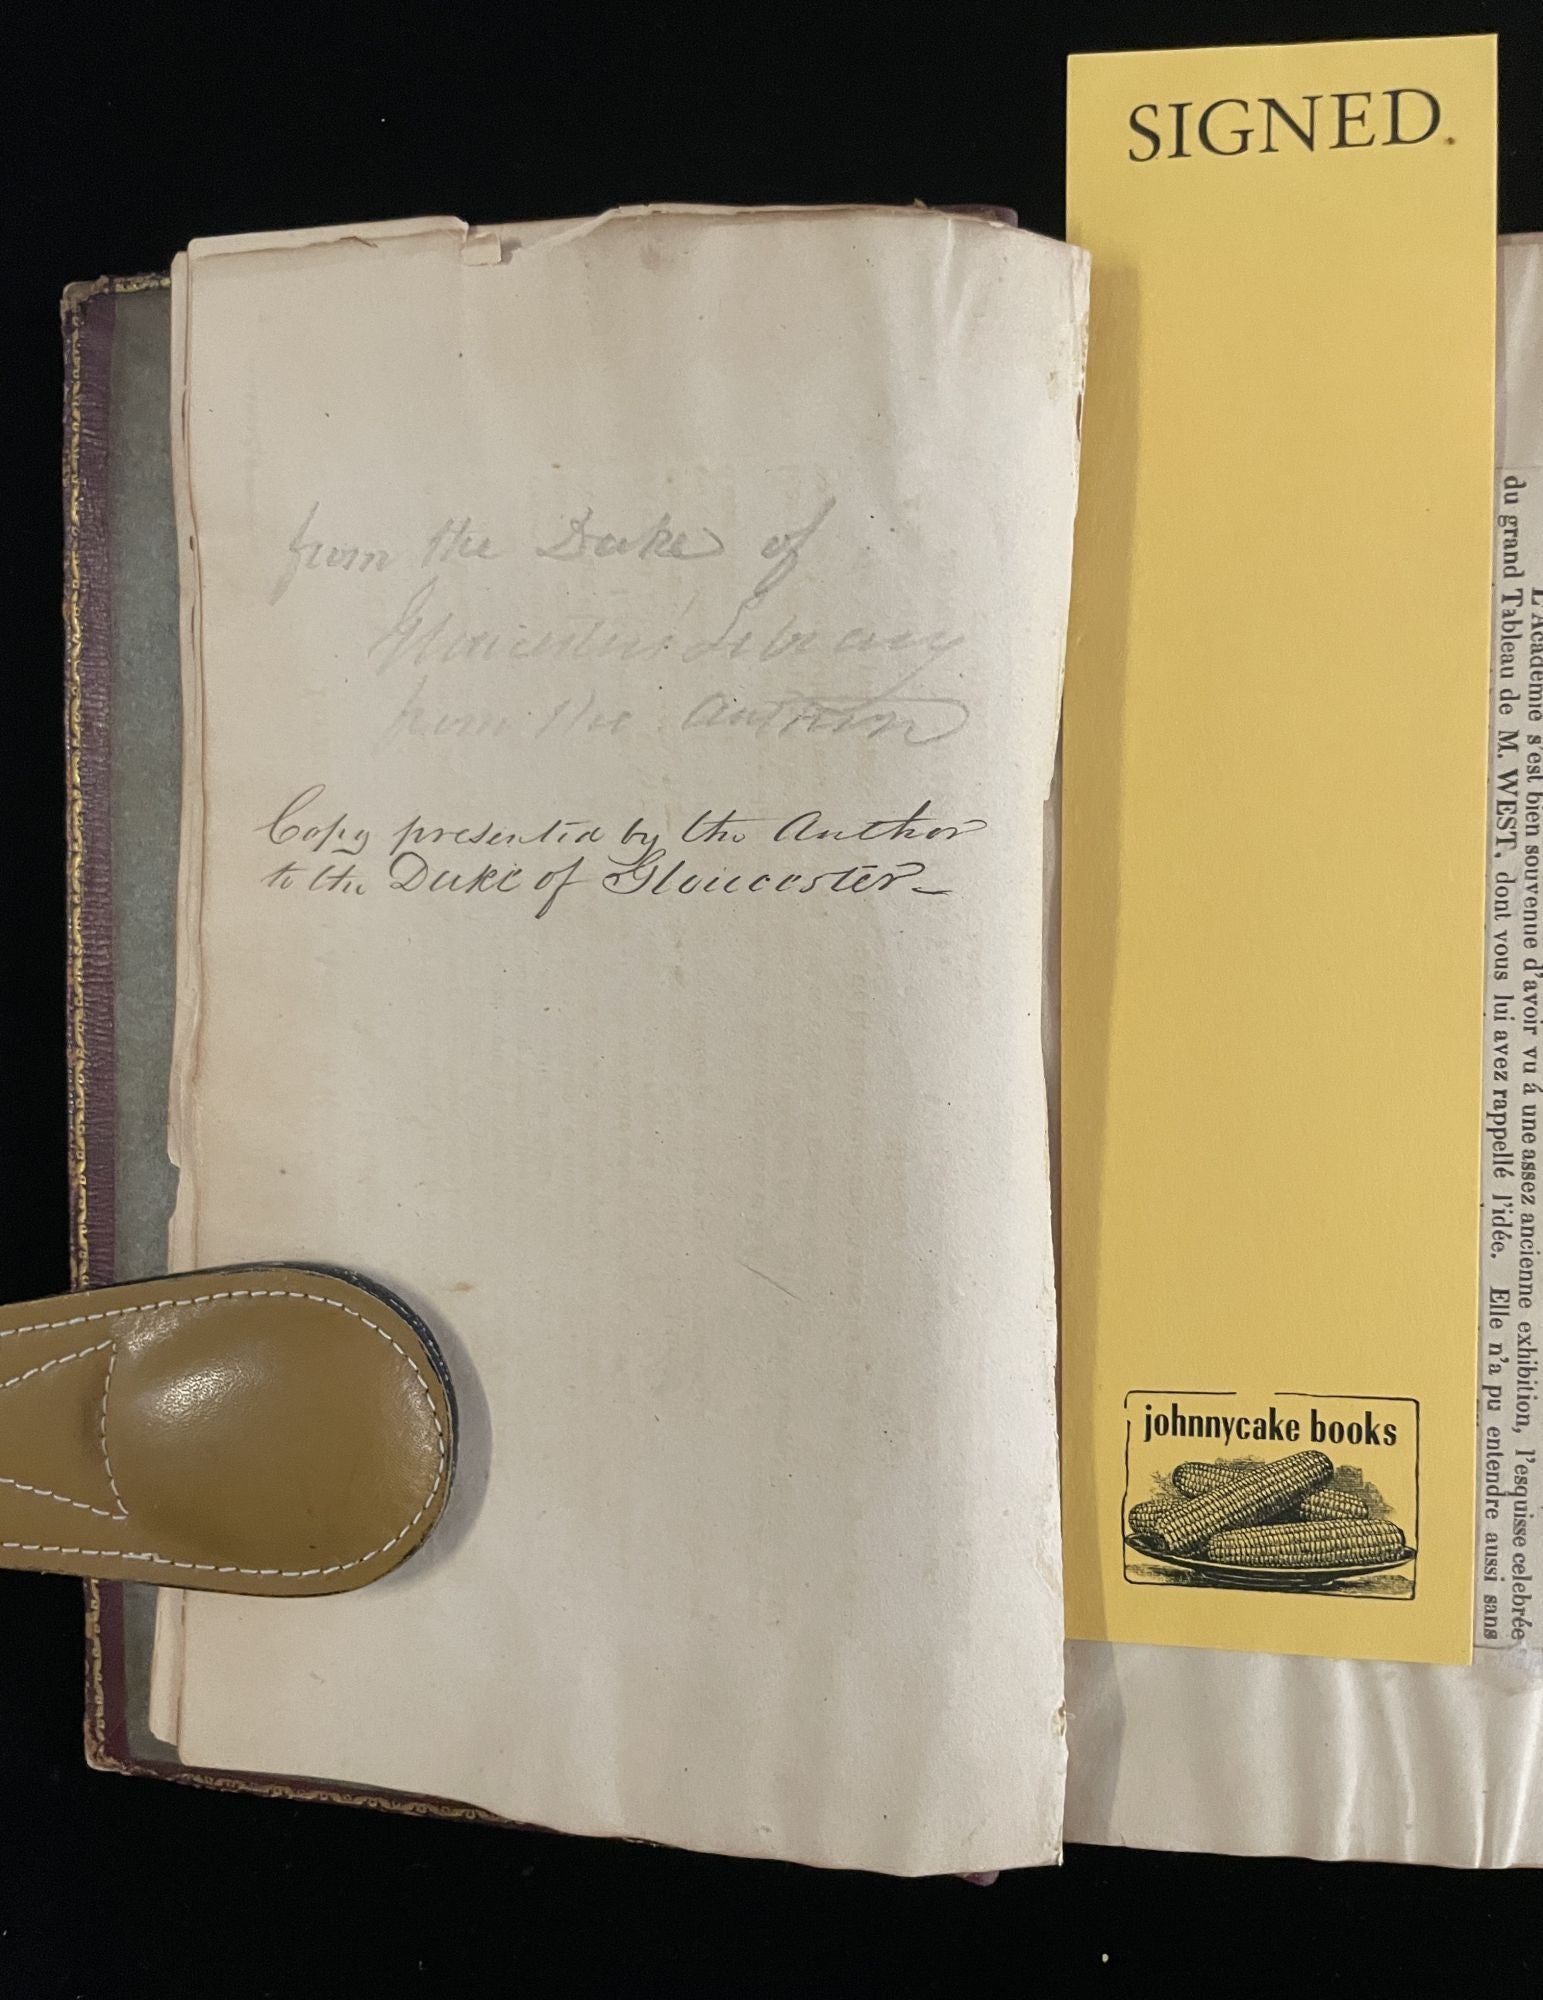 SIGNED.
from the Duke of
Gloucester's Library
from the Author
Copy presented by the Author
to the Duke of Gloucester—
johnnycake books
L'Académie s'est bien souvenue d'avoir vu á une assez ancienne exhibition, l'esquisse celebrée
du grand Tableau de M. WEST, dont vous lui avez rappellé l'idée. Elle n'a pu entendre aussi sans